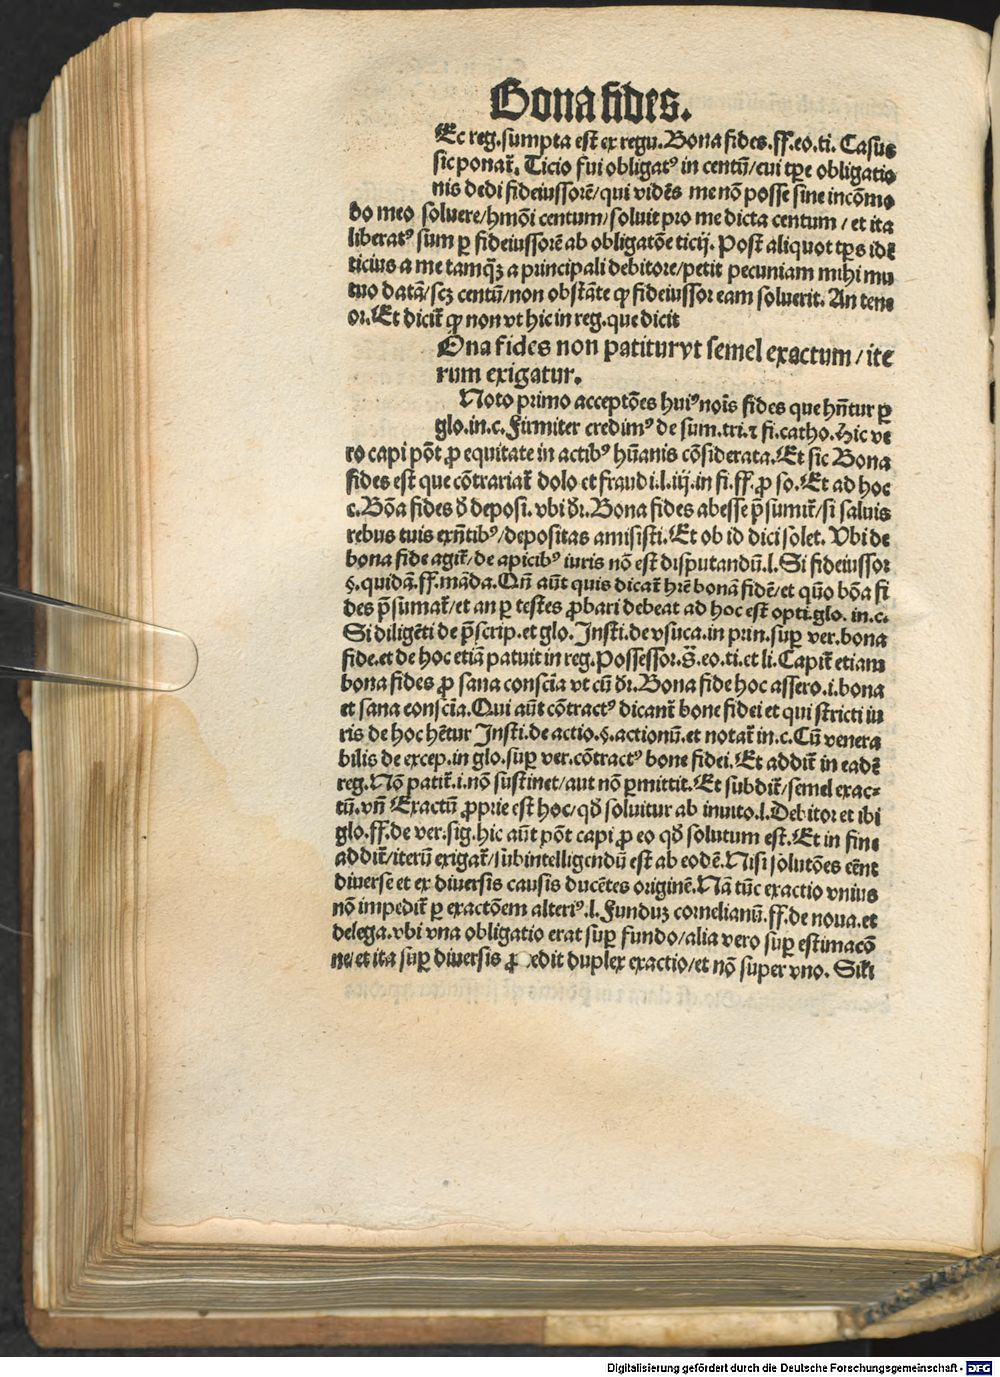 Bona fides.
Ec reg. sumpta est ex regu. Bona fides. ff. eo. ti. Casus
sic ponat̃. Ticio fui obligatꝰ in centũ/cui tp̃e obligatio
nis dedi fideiussorẽ/qui vidẽs me nõ posse sine incõmo
do meo soluere/hmõi centum/soluit pro me dicta centum/et ita
liberatꝰ sum ꝑ fideiussorẽ ab obligatõe ticij. Post aliquot tp̃s idẽ
ticius a me tamq̃ꝫ a principali debitore/petit pecuniam mihi mu
tuo datã/scꝫ centũ/non obstãte ꝙ fideiussor eam soluerit. An tene
or. Et dicit̃ ꝙ non vt hic in reg. que dicit
Ona fides non patitur vt semel exactum/ite
rum exigatur.
Noto primo acceptões huiꝰ nois̃ fides que hñtur ꝑ
glo. in. c. Firmiter credimꝰ de sum. tri. ⁊ fi. catho. Hic ve
ro capi põt ꝓ equitate in actibꝰ hũanis cõsiderata. Et sic Bona
fides est que cõtrariat̃ dolo et fraudi. l. iij. in fi. ff. ꝓ so. Et ad hoc
c. Bõa fides ð deposi. vbi ðr. Bona fides abesse p̃sumit̃/si saluis
rebus tuis exñtibꝰ/depositas amisisti. Et ob id dici solet. Vbi de
bona fide agit̃/de apicibꝰ iuris nõ est disputandũ. l. Si fideiussor
§. quidã. ff. mãda. Qñ aũt quis dicat̃ hr̃e bonã fidẽ/et qũo bõa fi
des p̃sumat̃/et an ꝑ testes ꝓbari debeat ad hoc est opti. glo. in. c.
Si diligẽti de p̃scrip. et glo. Insti. de vsuca. in prin. suꝑ ver. bona
fide. et de hoc etiã patuit in reg. Possessor. s̃. eo. ti. et li. Capit̃ etiam
bona fides ꝓ sana conscia vt cũ ðr. Bona fide hoc assero. i. bona
et sana conscĩa. Qui aũt cõtractꝰ dicant̃ bone fidei et qui stricti iu
ris de hoc hẽtur Insti. de actio. §. actionũ. et notat̃ in. c. Cũ venera
bilis de excep. in glo. suꝑ ver. cõtractꝰ bone fidei. Et addit̃ in eadẽ
reg. Nõ patit̃. i. nõ sustinet/aut nõ ꝑmittit. Et subdit̃/semel exac⸗
tũ. vñ Exactũ ꝓprie est hoc/qð soluitur ab inuito. l. Debitor et ibi
glo. ff. de ver. sig. hic aũt põt capi ꝓ eo qð solutum est. Et in fine
addit̃/iterũ exigat̃/subintelligendũ est ab eodẽ. Nisi solutões eẽnt
diuerse et ex diuersis causis ducẽtes originẽ. Nã tũc exactio vnius
nõ impedit̃ ꝑ exactõem alteriꝰ. l. Funduꝫ cornelianũ. ff. de noua. et
delega. vbi vna obligatio erat suꝑ fundo/alia vero suꝑ estimacõ
ne/et ita suꝑ diuersis edit duplex exactio/et nõ super vno.
Digitalisierung gefördert durch die Deutsche Forschungsgemeinschaft - DFG